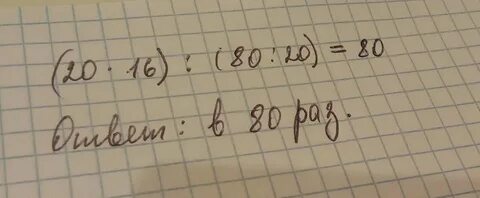 (20 · 16) : (80 : 20) = 80
Ответ: в 80 раз.